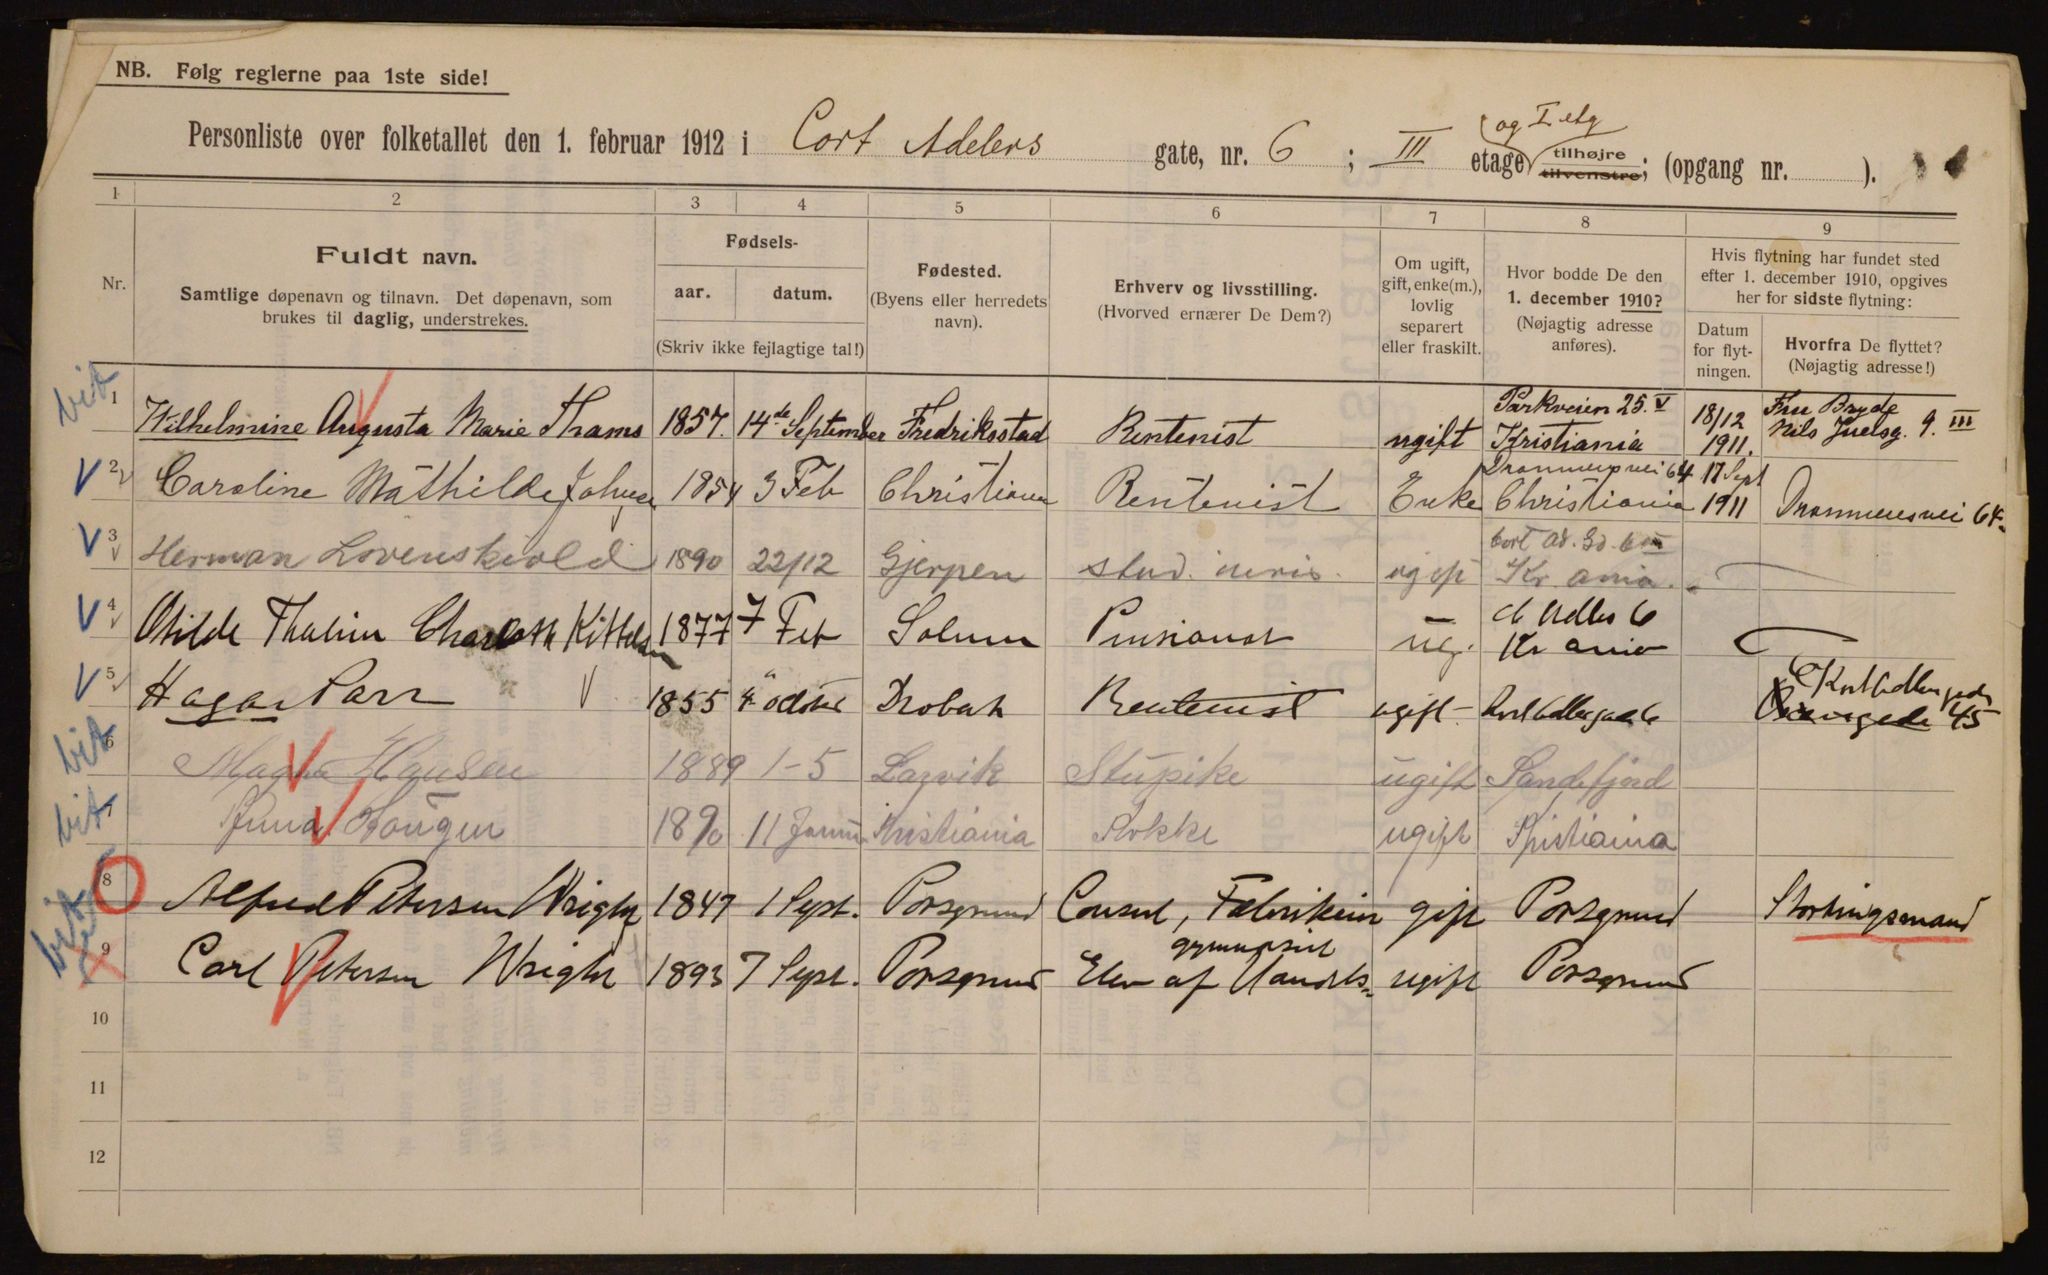 NB. Følg reglerne paa 1ste side!
og I etg
Personliste over folketallet den 1. februar 1912 i Cort Adelers gate, nr. 6 ; III etage tilhøjre tilvenstre; (opgang nr. ).
1 2 3 4 5 6 7 8 9
Nr.
Fuldt navn.
Samtlige døpenavn og tilnavn. Det døpenavn, som
brukes til daglig, understrekes.
Fødsels-
aar. datum.
(Skriv ikke fejlagtige tal!)
Fødested.
(Byens eller herredets
navn).
Erhverv og livsstilling.
(Hvorved ernærer De Dem?)
Om ugift,
gift, enke(m.),
lovlig
separert
eller fraskilt.
Hvor bodde De den
1. december 1910?
(Nøjagtig adresse
anføres).
Hvis flytning har fundet sted
efter 1. december 1910, opgives
her for sidste flytning:
Datum
for flyt-
ningen.
Hvorfra De flyttet?
(Nøjagtig adresse!)
bit
Parkveien 25. V 18/12 Fru Bryde
1 Wilhelmine Augusta Marie Thams 1857. 14de September Fredriksstad Rentenist ugift Kristiania 1911. Nils Juelsg. 9. III
Drammensvei 64 17 Sept
V 2 Caroline Mathilde 1854 3 Feb Christiania Rentenist Enke Christiania 1911 Drammensvei 64
V 3 Herman Lovenskiold 1890 22/12 Gjerpen stud. iuris. ugift Kr ania
V 4 Kittelsen 1877 7 Feb Solum Pensionat ug. Kr ania
Kort Adlers gade
V 5 Hagar Parr V 1855 4 Drobak Rentenist ugift 45
bit 6 Hansen 1889 1-5 Larvik Stupike ugift Sandefjord
bit 7 1890 11 Kristiania Kokke ugift Kristiania
8 Alfred Petersen Wright 1847 1 Sept. Porsgrund Consul, gift Porsgrund Stortingsmand
bit
gymnasiet
9 Carl Petersen Wright 1893 7 Sept. Porsgrund Elev af Handels- ugift Porsgrund
10
11
12